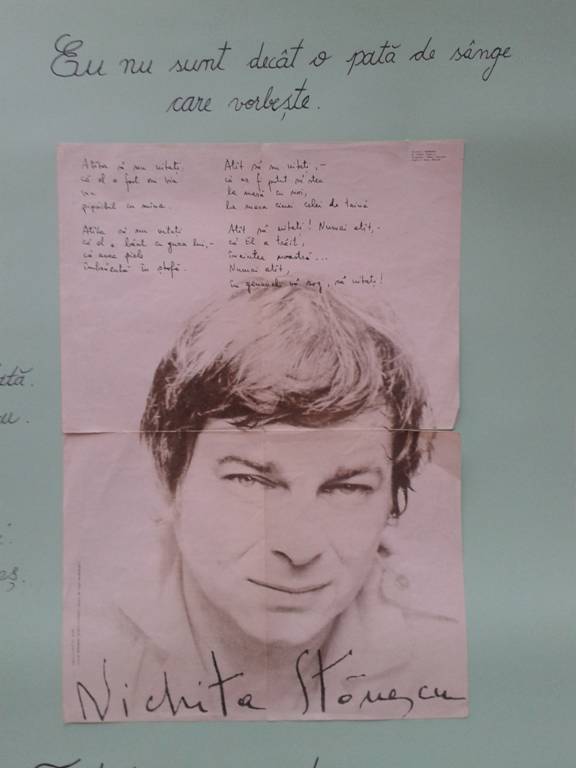 Eu nu sunt decât o pată de sânge
care vorbește.
Atîta să nu uitați
că el a fost om viu
viu
pipăibil cu mîna.
Atîta să nu uitați
că el a băut cu gura lui,-
că avea piele
îmbrăcată în ștofă.
Atît să nu uitați,-
că ar fi putut să stea
la masă cu noi,
la masa cinei celei de taină
Atît să nu uitați! Numai atît,-
că El a trăit,
înaintea noastră...
Numai atît,
în genunchi vă rog, să nu uitați!
Nichita Stănescu